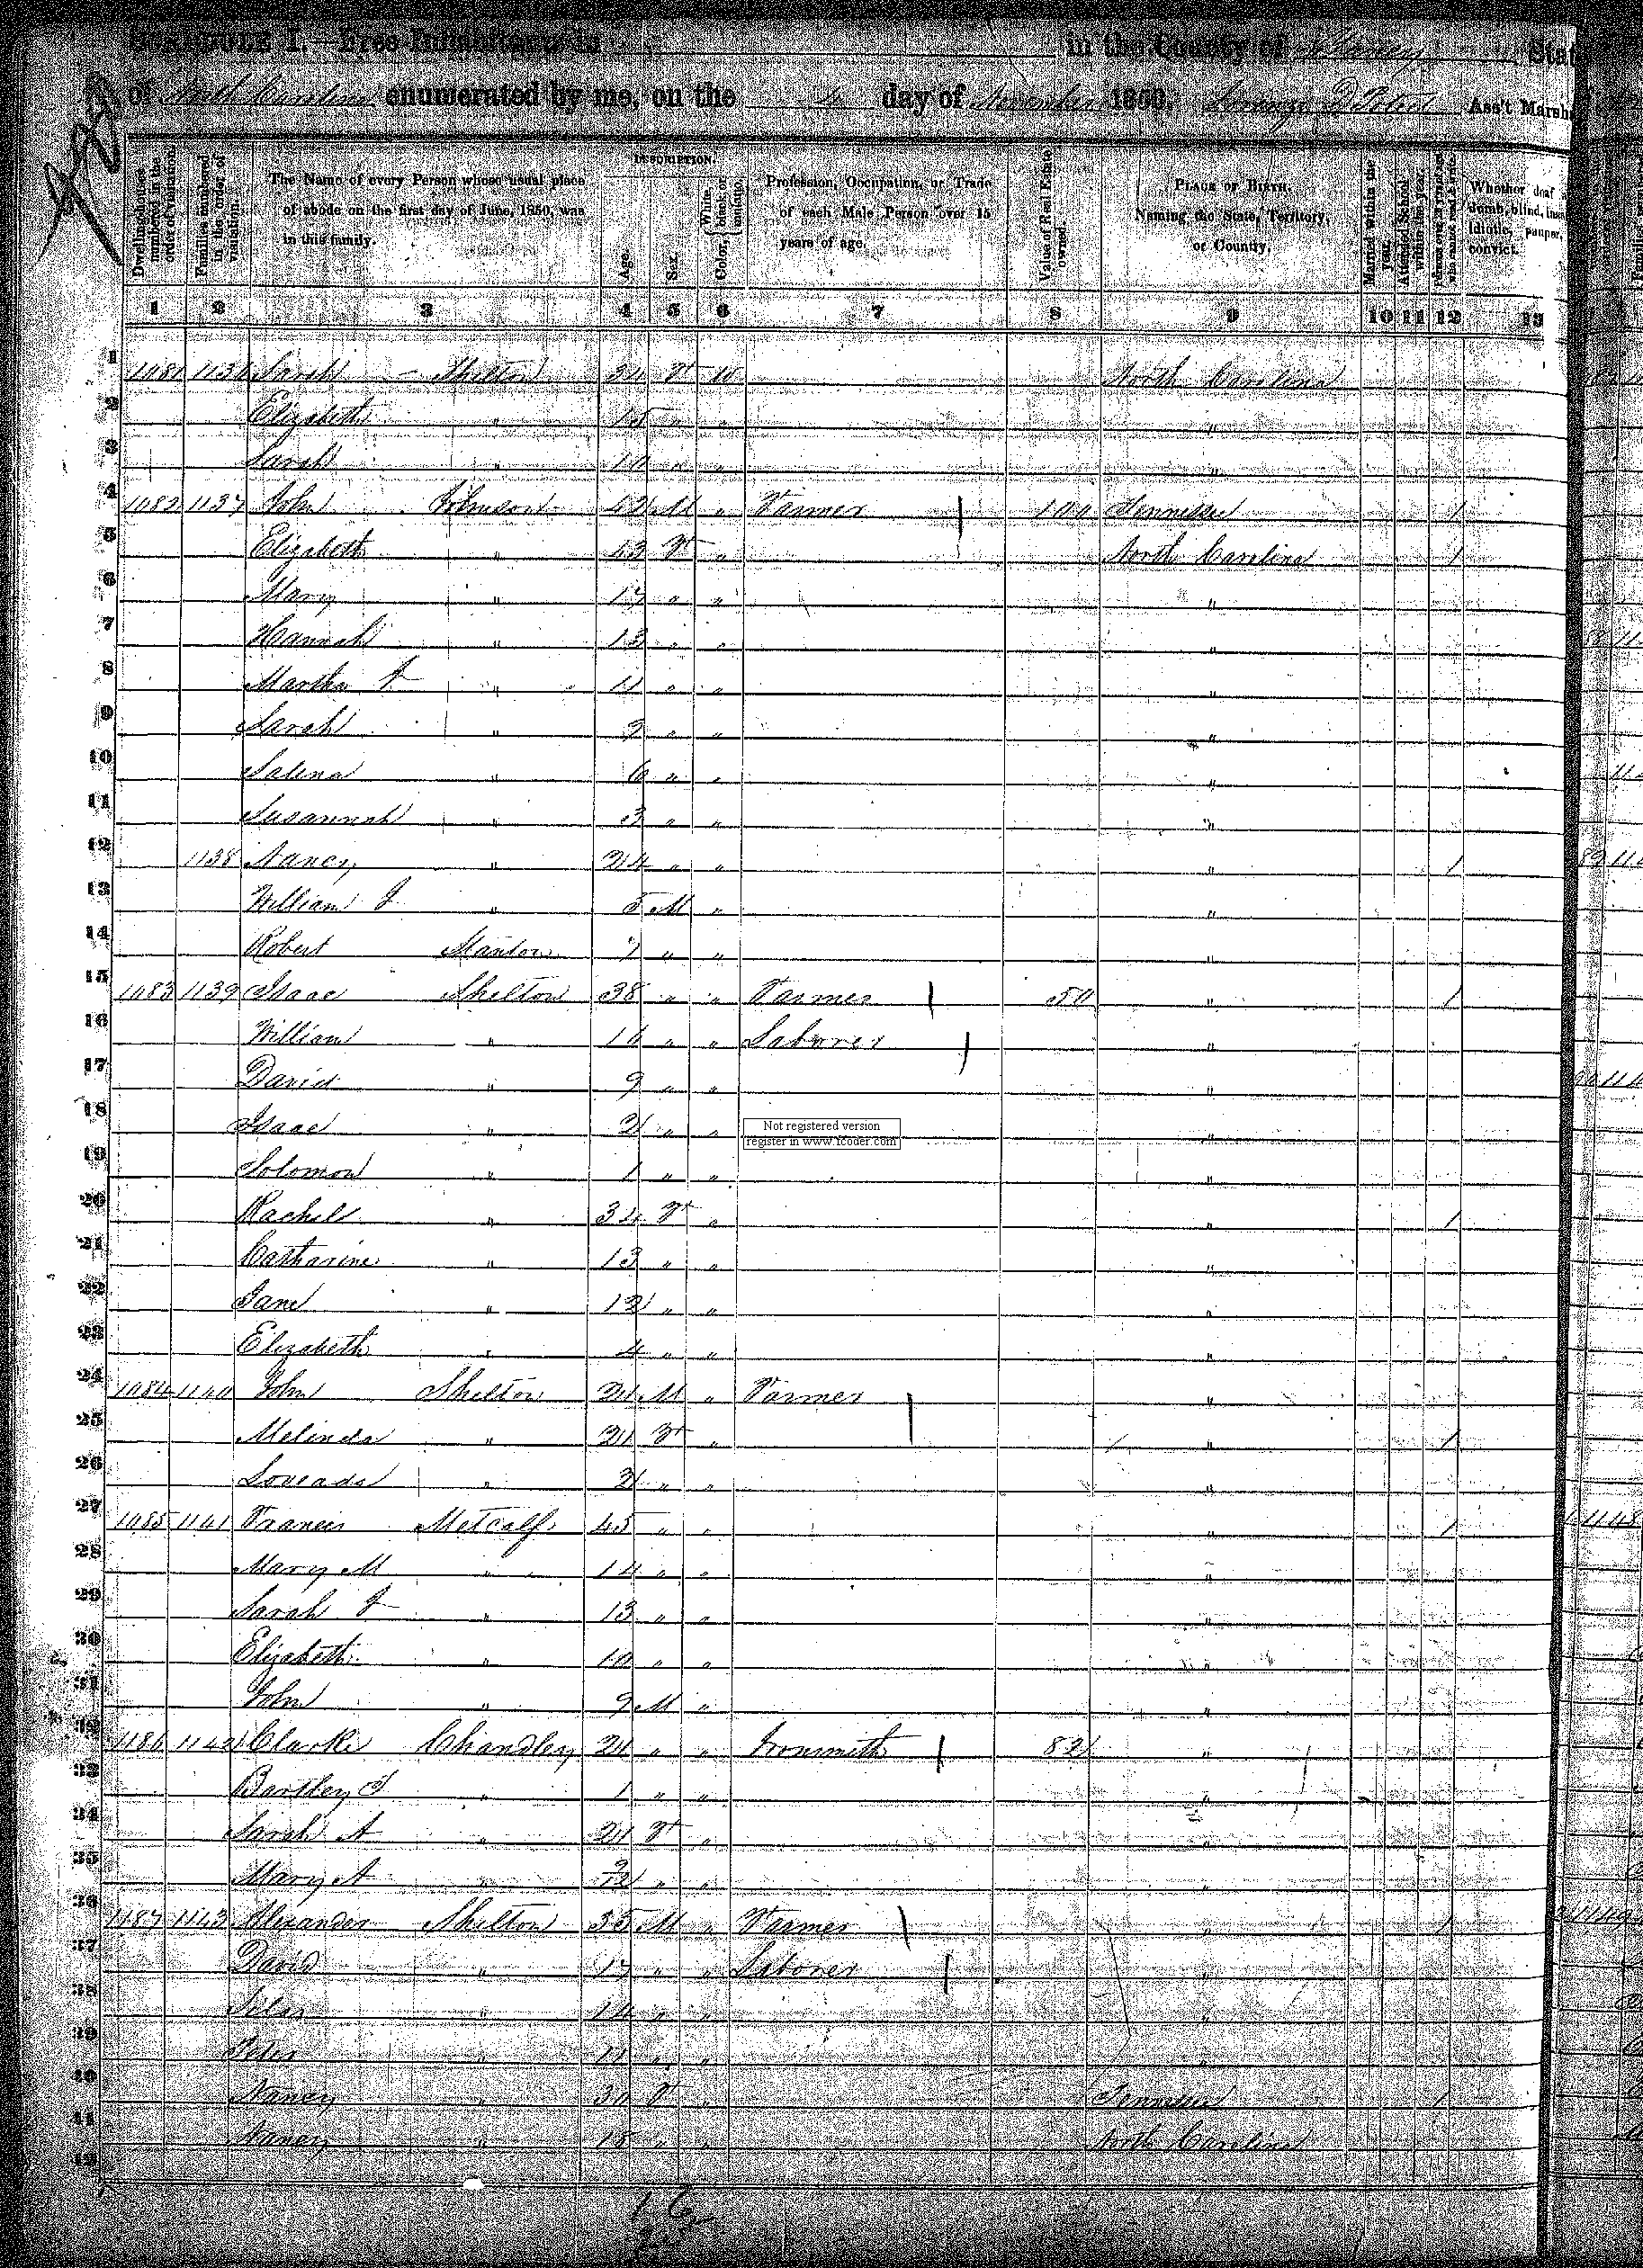 SCHEDULE I.—Free Inhabitants in in the County of Yancey State
of North Carolina enumerated by me, on the 4 day of November 1850. D Ass't Marshal
Dwelling-houses numbered in the order of visitation.
Families numbered in the order of visitation.
The Name of every Person whose usual place of abode on the first day of June, 1850, was in this family.
DESCRIPTION.
Age.
Sex.
Color, White, black, or mulatto.
Profession, Occupation, or Trade of each Male Person over 15 years of age.
Value of Real Estate owned.
PLACE OF BIRTH. Naming the State, Territory, or Country.
Married within the year.
Attended School within the year.
Persons over 20 y'rs of age who cannot read & write.
Whether deaf dumb, blind, insane idiotic, pauper, convict.
1 2 3 4 5 6 7 8 9 10 11 12 13
1 1081 1136 Sarah Shelton 34 F W North Carolina
2 Elizabeth " 15 " " "
3 Sarah " 10 " " "
4 1082 1137 John Johnson 42 M " Farmer 100 Tennessee 1
5 Elizabeth " 43 F " North Carolina 1
6 Mary " 17 " " "
7 Hannah " 13 " " "
8 Martha " 11 " " "
9 Sarah " 9 " " "
10 Salena " 6 " " "
11 Susannah " 3 " " "
12 1138 Nancy " 24 " " " 1
13 William J " 5 M " "
14 Robert 7 " " "
15 1083 1139 Isaac Shelton 38 " " Farmer 50 " 1
16 William " 16 " " Laborer "
17 David " 9 " " "
18 Isaac " 2 " " "
Not registered version
register in www.fcoder.com
19 Solomon " 1 " " "
20 Rachel " 34 F " " 1
21 Catharine " 13 " " "
22 Jane " 12 " " "
23 Elizabeth " 4 " " "
24 1084 1140 John Shelton 21 M " Farmer "
25 Melinda " 21 F " " 1
26 " 2 " " "
27 1085 1141 Francis Metcalf 45 " " " 1
28 Mary M " 14 " " "
29 Sarah J " 13 " " "
30 Elizabeth " 10 " " "
31 John " 9 M " "
32 1186 1142 Clarke Chandley 21 " " 82 "
33 Bartley J " 1 " " "
34 Sarah A " 21 F " "
35 Mary A " 9/12 " " "
36 1187 1143 Alexander Shelton 35 M " Farmer " 1
37 David " 17 " " Laborer "
38 Silas " 14 " " "
39 Peter " 11 " " "
40 Nancy " 30 F " Tennessee 1
41 Nancy " 15 " " North Carolina
42